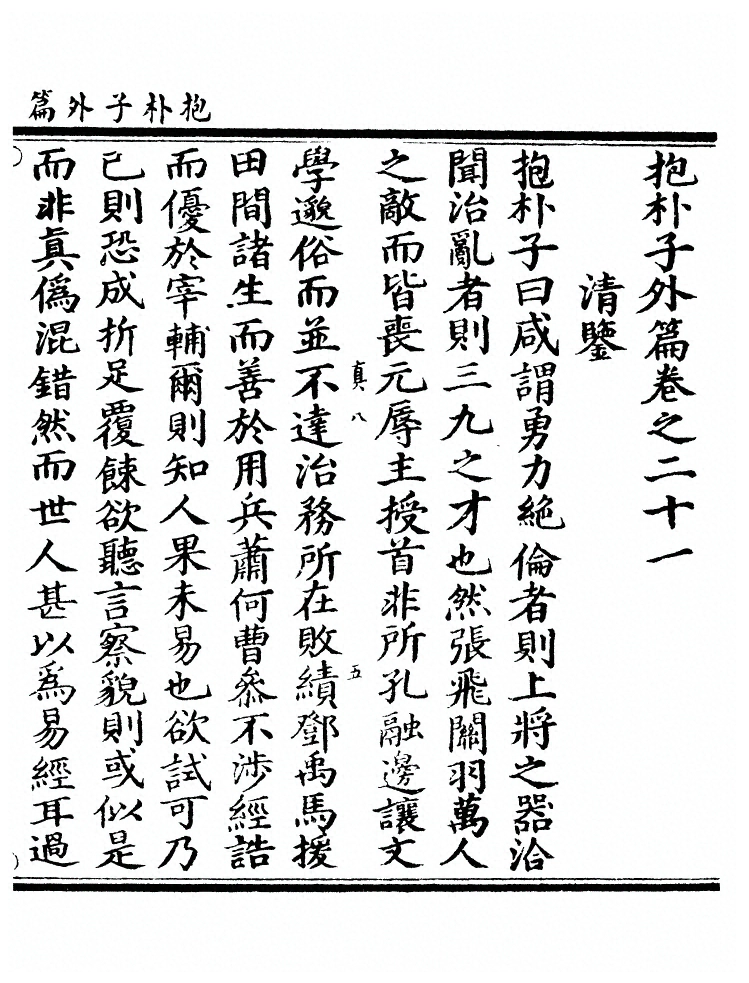 抱朴子外篇
抱朴子外篇卷之二十一
清鑒
抱朴子曰咸謂勇力絶倫者則上將之器洽
聞治亂者則三九之才也然張飛關羽萬人
之敵而皆喪元辱主授首非所孔融邊讓文
真八
五
學邈俗而並不達治務所在敗績鄧禹馬援
田間諸生而善於用兵蕭何曹參不涉經誥
而優於宰輔爾則知人果未易也欲試可乃
已則恐成折足覆餗欲聽言察貌則或似是
而非眞僞混錯然而世人甚以爲易經耳過